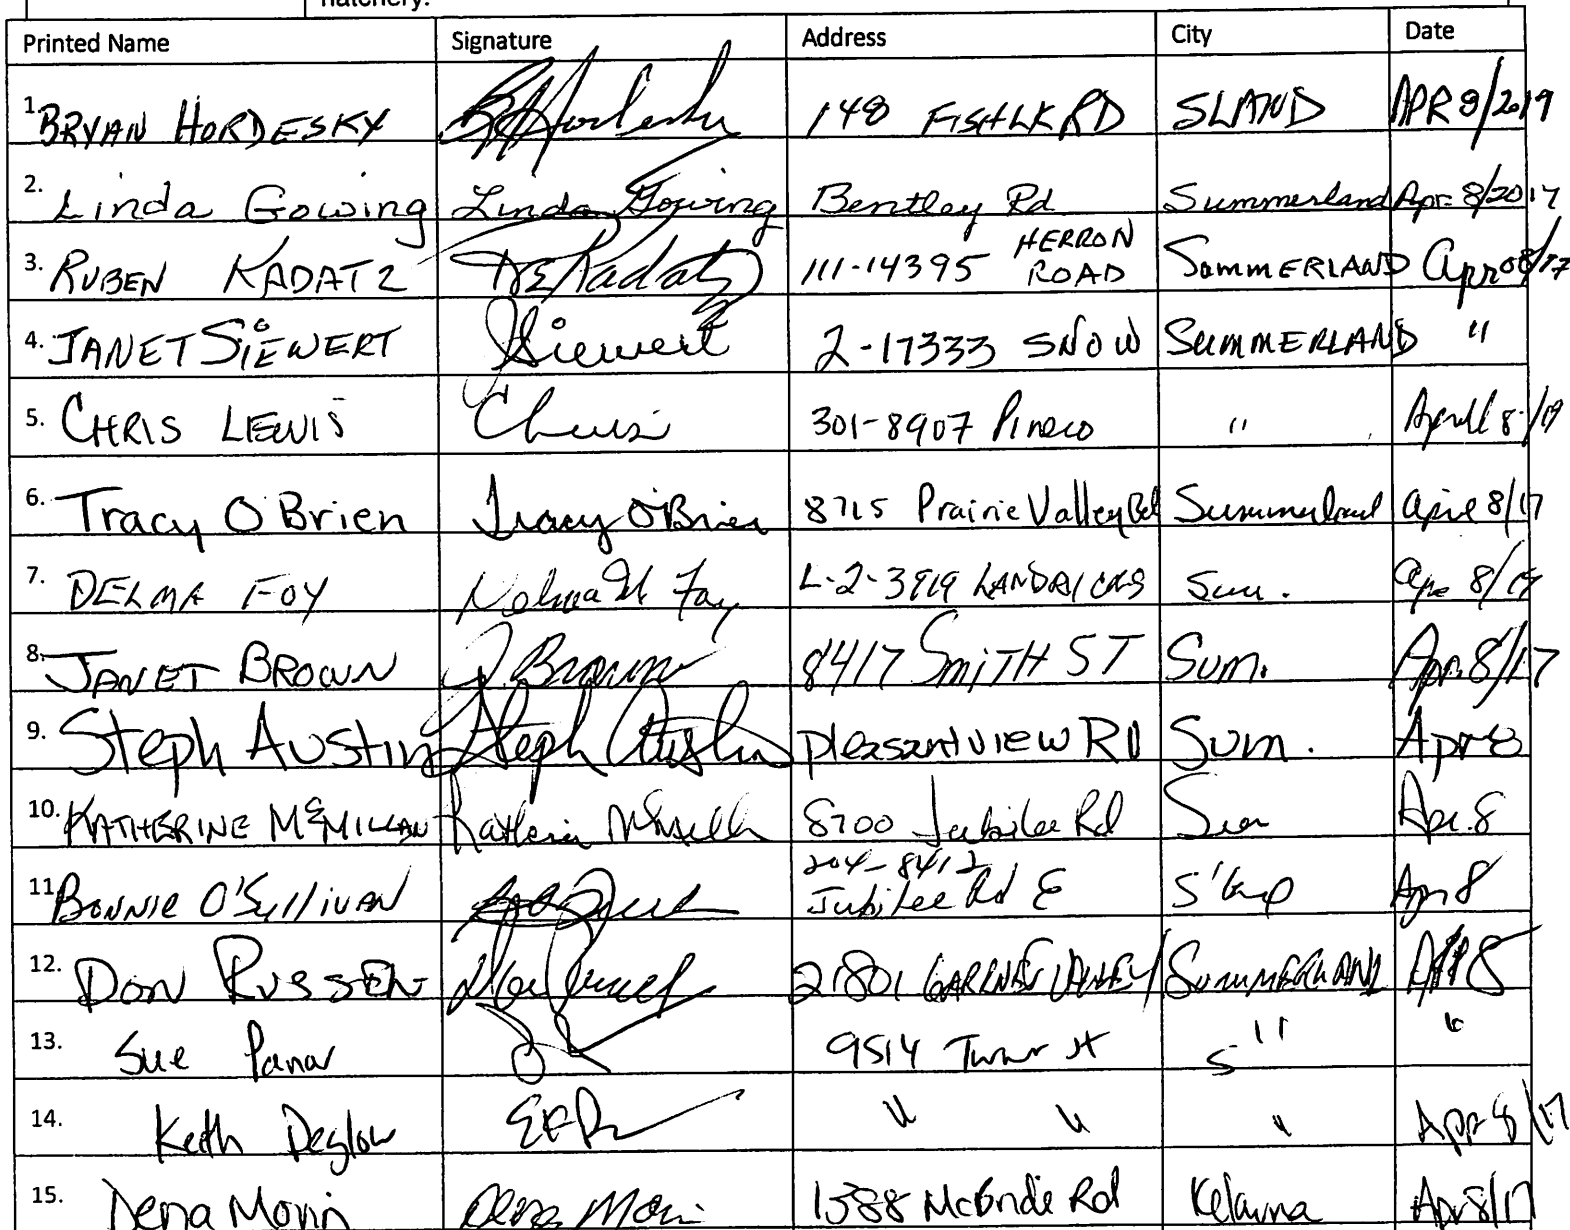 hatchery.
Printed Name Signature Address City Date
1. BRYAN HORDESKY 148 FISH LK RD SLAND APR 8/2019
2. Linda Gowing Linda Gowing Bentley Rd Summerland Apr. 8/2017
3. RUBEN KADATZ RE Kadatz 111-14395 HERRON ROAD SUMMERLAND Apr 08/17
4. JANET SIEWERT JSiewert 2-17333 SNOW SUMMERLAND "
5. CHRIS LEWIS 301-8907 " April 8/19
6. Tracy O'Brien Tracy O'Brien 8715 Prairie Valley Rd Summerland April 8/17
7. DELMA FOY Sum. Apr 8/17
8. JANET BROWN J. Brown 8417 SMITH ST Sum. Apr. 8/17
9. Steph Austin Steph Austin pleasantview RD Sum. Apr 8
10. KATHERINE McMILLAN 8700 Jubilee Rd Sum Apr. 8
11. BONNIE O'SULLIVAN 204-8412 Jubilee Rd E S'land Apr 8
12. DON RUSSEN 21801 GARNET VALLEY SUMMERLAND APR 8
13. Sue Panar 9514 Turner St S " "
14. Keith Deglow " " " Apr 8/17
15. Dena Morin Dena Morin 1388 McBride Rd Kelowna Apr 8/17